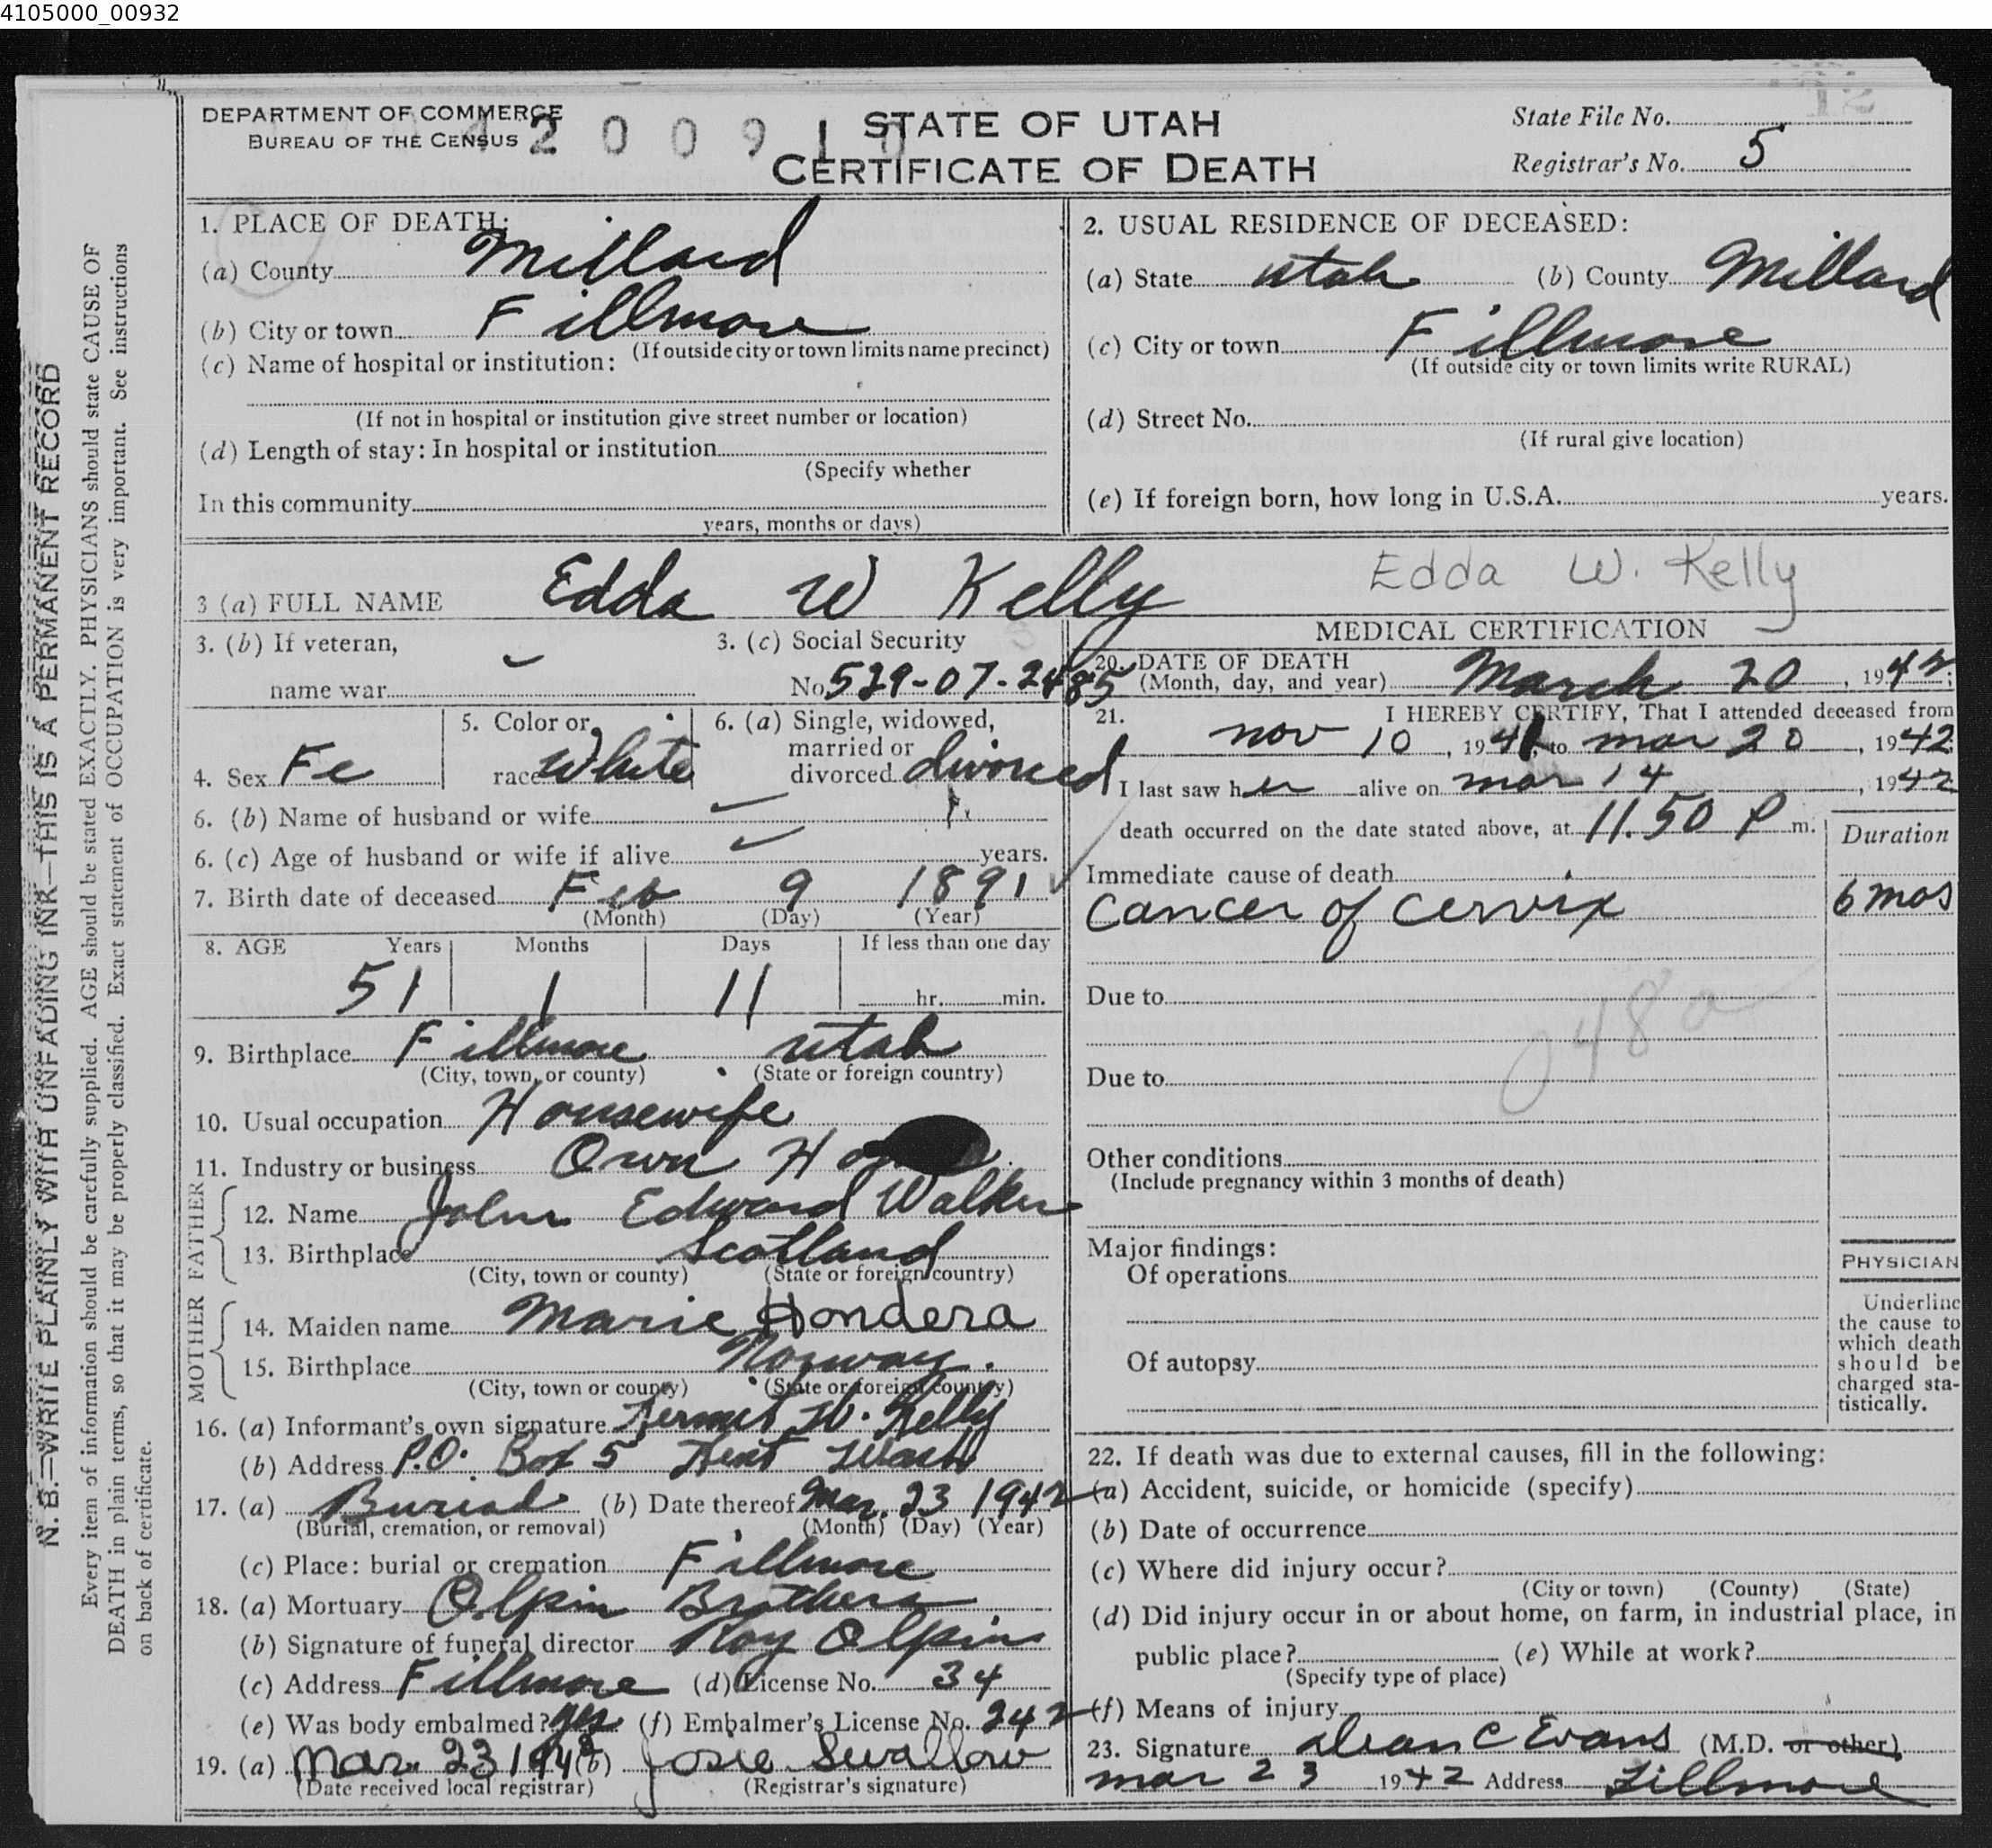 4105000_00932
DEPARTMENT OF COMMERCE
BUREAU OF THE CENSUS
STATE OF UTAH
CERTIFICATE OF DEATH
State File No.
Registrar's No. 5
1. PLACE OF DEATH:
(a) County Millard
(b) City or town Fillmore
(If outside city or town limits name precinct)
(c) Name of hospital or institution:
(If not in hospital or institution give street number or location)
(d) Length of stay: In hospital or institution
(Specify whether
In this community
years, months or days)
2. USUAL RESIDENCE OF DECEASED:
(a) State Utah (b) County Millard
(c) City or town Fillmore
(If outside city or town limits write RURAL)
(d) Street No.
(If rural give location)
(e) If foreign born, how long in U.S.A. years.
3 (a) FULL NAME Edda W Kelly
Edda W. Kelly
3. (b) If veteran,
name war
3. (c) Social Security
No. 529-07-2485
4. Sex Fe
5. Color or
race White
6. (a) Single, widowed,
married or
divorced divorced
6. (b) Name of husband or wife
6. (c) Age of husband or wife if alive years.
7. Birth date of deceased Feb 9 1891
(Month) (Day) (Year)
8. AGE Years Months Days If less than one day
51 1 11 hr. min.
9. Birthplace Fillmore Utah
(City, town, or county) (State or foreign country)
10. Usual occupation Housewife
11. Industry or business Own
FATHER
12. Name John Edward Walker
13. Birthplace Scotland
(City, town or county) (State or foreign country)
MOTHER
14. Maiden name Marie Hondera
15. Birthplace Norway.
(City, town or county) (State or foreign country)
16. (a) Informant's own signature Kermit W. Kelly
(b) Address P.O. Box 5 Kent Wash
17. (a) Burial (b) Date thereof Mar. 23 1942
(Burial, cremation, or removal) (Month) (Day) (Year)
(c) Place: burial or cremation Fillmore
18. (a) Mortuary Olpin Brothers
(b) Signature of funeral director Roy Olpin
(c) Address Fillmore (d) License No. 34
(e) Was body embalmed? yes (f) Embalmer's License No. 242
19. (a) Mar. 23 1942 (b) Josie Swallow
(Date received local registrar) (Registrar's signature)
MEDICAL CERTIFICATION
20. DATE OF DEATH
(Month, day, and year) March 20, 1942
21. I HEREBY CERTIFY, That I attended deceased from
Nov 10, 1941, to Mar 20, 1942
I last saw her alive on Mar 14, 1942
death occurred on the date stated above, at 11.50 P m.
Duration
Immediate cause of death
Cancer of Cervix 6 mos
Due to
048a
Due to
Other conditions
(Include pregnancy within 3 months of death)
Major findings:
Of operations
Of autopsy
PHYSICIAN
Underline
the cause to
which death
should be
charged sta-
tistically.
22. If death was due to external causes, fill in the following:
(a) Accident, suicide, or homicide (specify)
(b) Date of occurrence
(c) Where did injury occur?
(City or town) (County) (State)
(d) Did injury occur in or about home, on farm, in industrial place, in
public place? (e) While at work?
(Specify type of place)
(f) Means of injury
23. Signature Dean C Evans (M.D. or other)
Mar 23 1942 Address Fillmore
N. B.—WRITE PLAINLY WITH UNFADING INK—THIS IS A PERMANENT RECORD
Every item of information should be carefully supplied. AGE should be stated EXACTLY. PHYSICIANS should state CAUSE OF
DEATH in plain terms, so that it may be properly classified. Exact statement of OCCUPATION is very important. See instructions
on back of certificate.